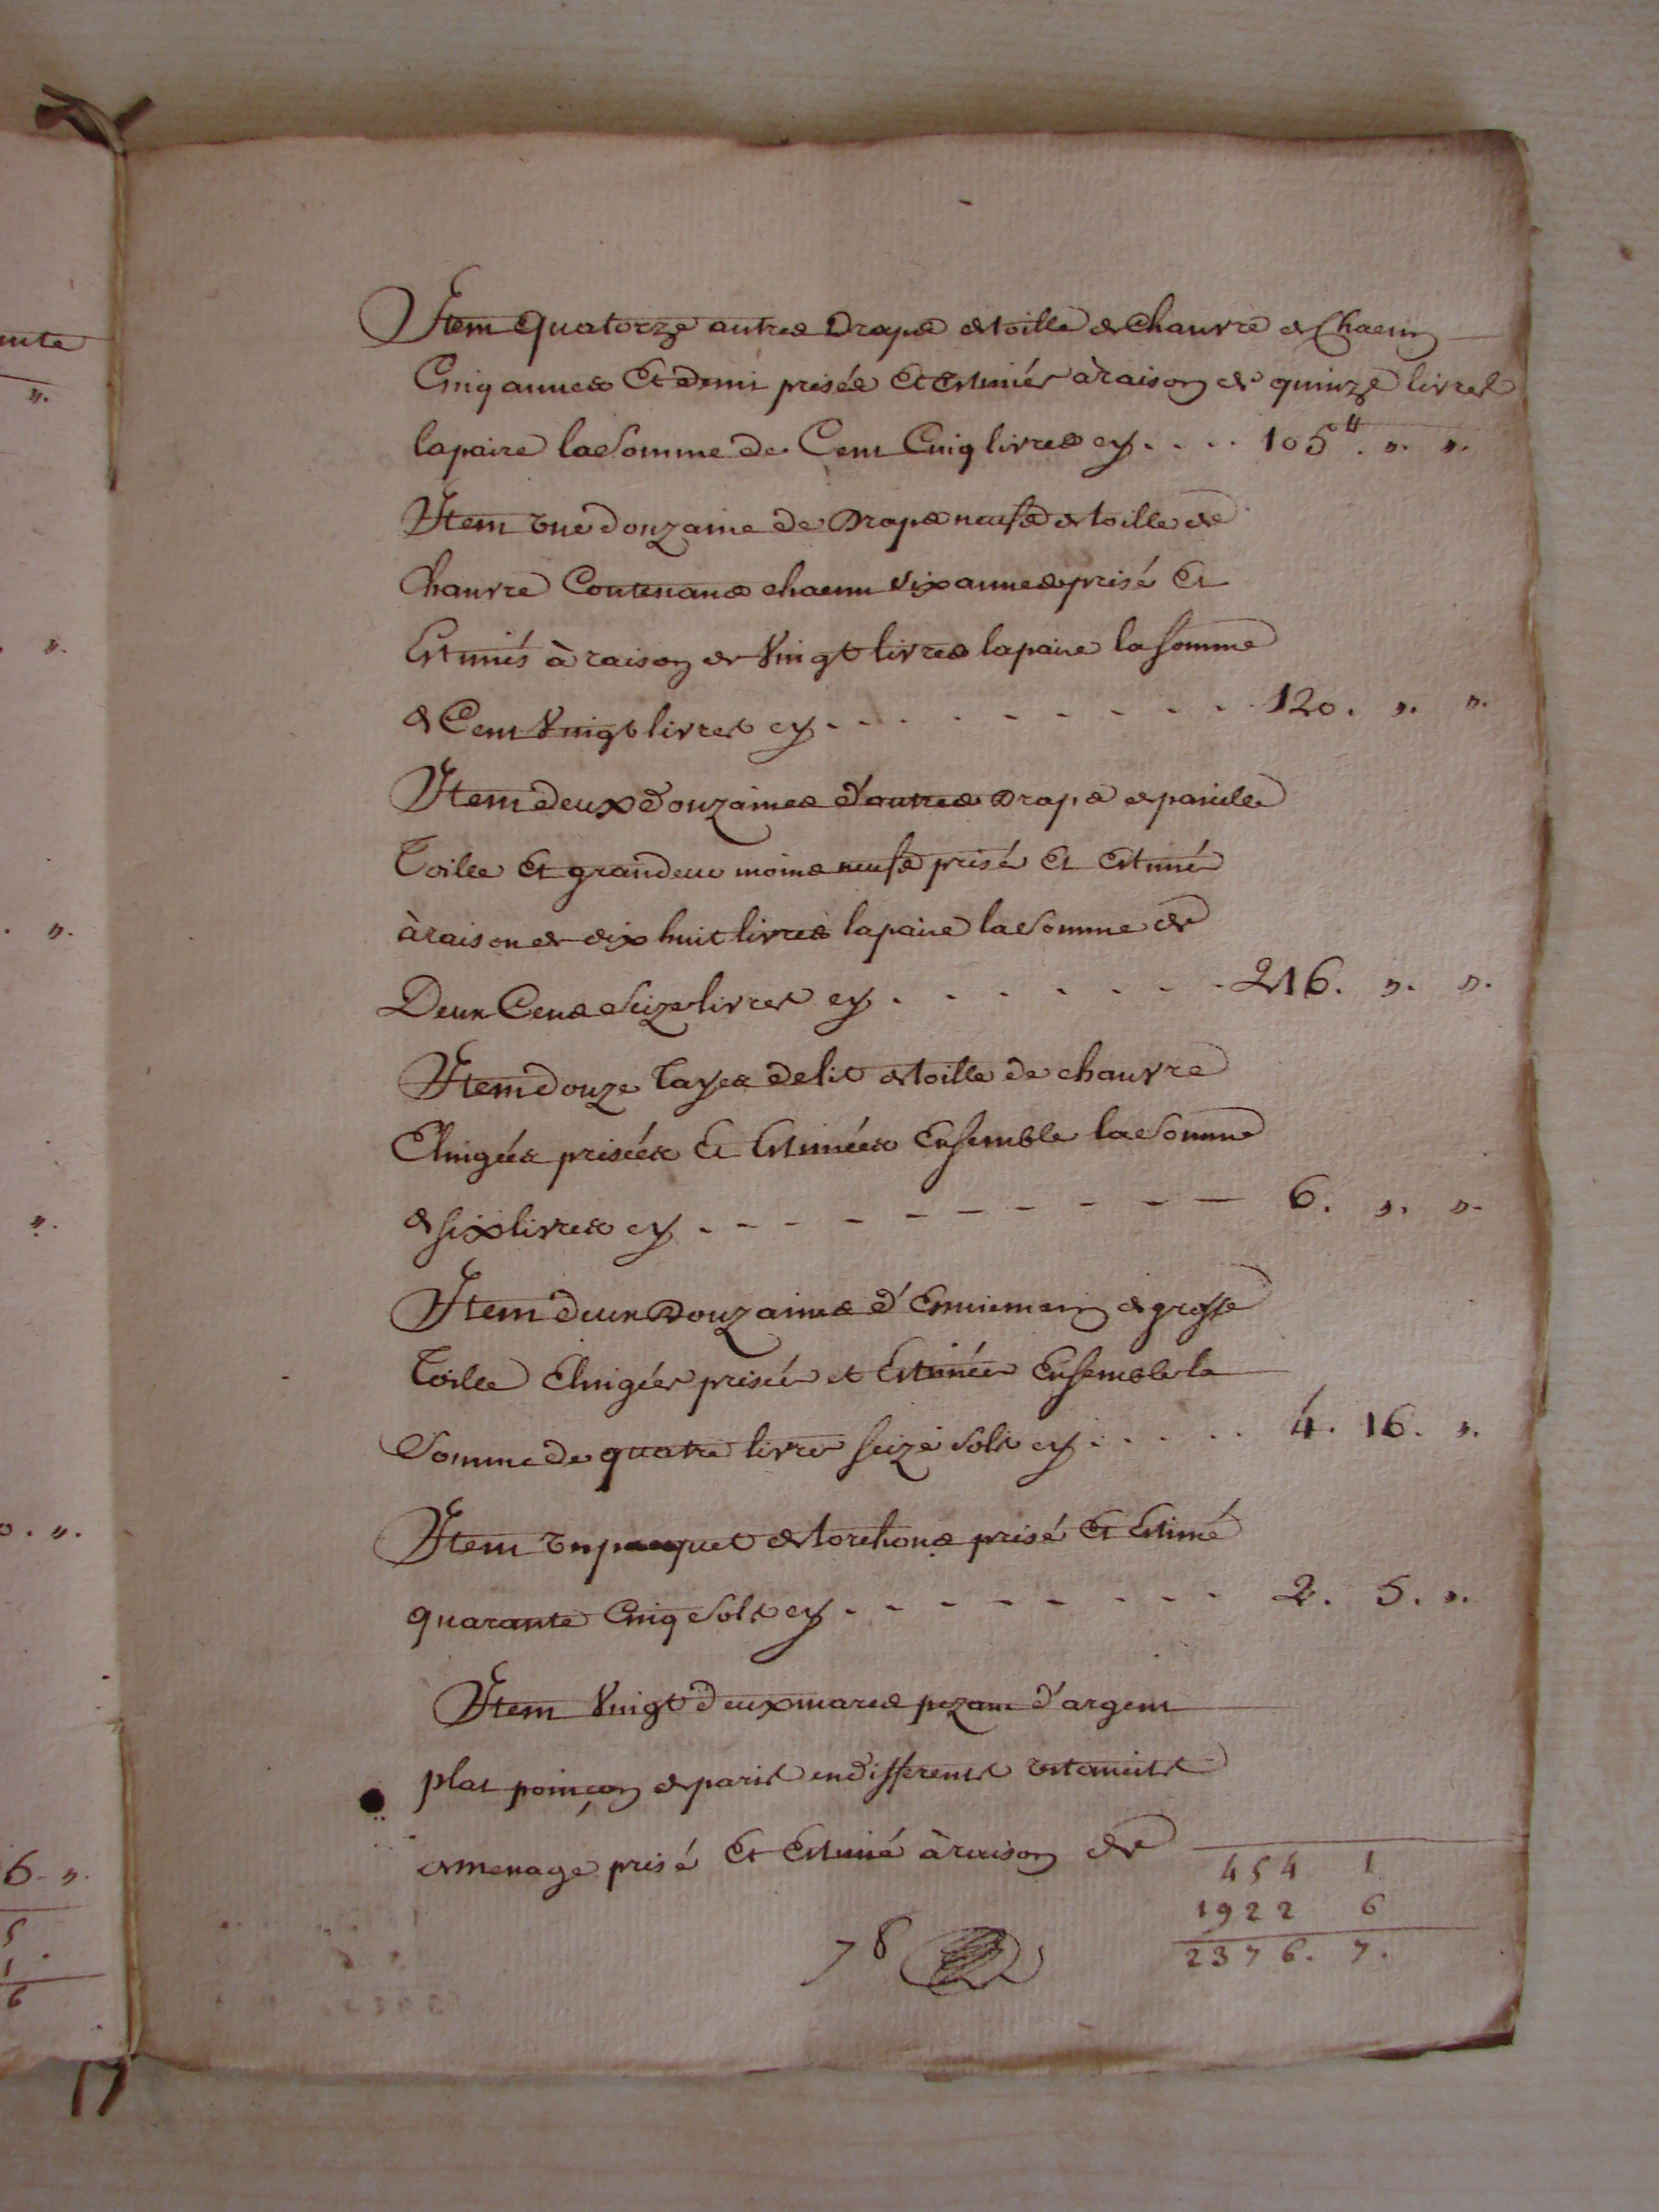 Item quatorze autres draps de toille de chanvre de Chacun
Cinq aunes Et demi prisés Et Estimés à raison de quinze livres
la paire la Somme de Cent Cinq livres cy.... 105lt. ". ".
Item une douzaine de Draps neufs de toille de
Chanvre Contenans chacun six aunes prisé Et
Estimés à raison de Vingt livres la paire la somme
de Cent Vingt livres cy.......... 120. ". ".
Item deux douzaines d'autres Draps de pareille
Toille Et grandeur moins neufs prisé Et Estimé
à raison de dix huit livres la paire la Somme de
Deux Cens Seize livres cy....... 216. ". ".
Item douze Tayes de lit de toille de chanvre
Elingées prisées Et Estimées Ensemble la Somme
de six livres cy.--------- 6. ". ".
Item deux Douzaines d'Essuiemain de grosse
Toille Elingées prisées et Estimées Ensemble la
Somme de quatre livres seize Sols cy..... 4. 16. ".
Item un paquet de torchons prisé Et Estimé
quarante Cinq Sols cy.-------- 2. 5. ".
Item Vingt deux marcs pezant d'argent
plat poinçon de paris en differents ustancils
de menage prisé Et Estimé à raison de
454 1
1922 6
2376. 7.
78
nte
".
".
. ".
".
0. ".
6. ".
5
1.
6